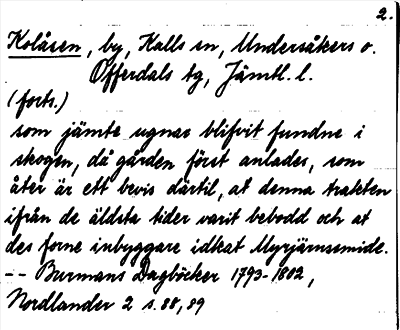 2.
Kolåsen, by, Kalls sn, Undersåkers o.
Offerdals tg, Jämtl. l.
(forts.)
som jämte ugnar blifvit fundne i
skogen, då gården först anlades, som
åter är ett bevis därtil, at denna trakten
ifrån de äldsta tider varit bebodd och at
des forne inbyggare idkat Myrjärnsmide.
-- Burmans Dagböcker 1793-1802,
Nordlander 2 s. 88, 89